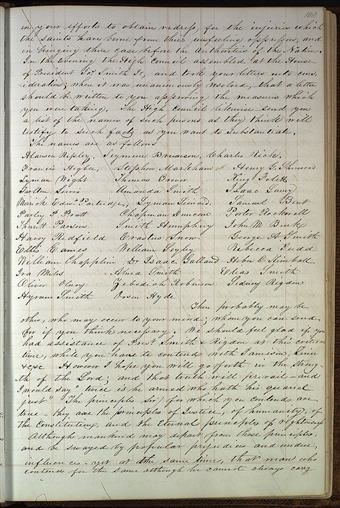 100
in your efforts to obtain redress for the injuries which
the saints have borne from their unfeeling oppressors, and
in bringing their case before the Authorities of the Nation.
In the evening the High Council assembled at the House
of President Jos. Smith Jr, and took your letters into con-
sideration; when it was unanimously resolved, that a letter
should be written to you approving the measures which
you were taking. The High Council likewise send you
a list of the names of such persons, as they think will
testify to such facts as you want to Substantiate.
The names are as follows
Alanson Ripley, Seymour Brunson, Charles Rich
Francis Higbee, Stephen Markham & Henry G. Sherwood
Lyman Wight Thomas King
Smith Amanda Smith Isaac
Edwd. Partridge, Lyman Samuel Bent
Parley P. Pratt Chapman Duncan Porter Rockwell
Parsons Smith Humphrey John M. Burk
Harry Redfield Erastus Snow George A. Smith
Ellis William Rebecca Judd
William Chapplin Dr Isaac Galland Heber C. Kimball
Miles Smith Elias Smith
Oliver Olney Zebediah Robinson Sidney Rigdon
Hyrum Smith Orson Hyde
There probably may be
others who may occur to your mind; whom you can send
for if you think necessary. We should feel glad if you
had assistance of Prest Smith & Rigdon at this critical
time, while you have to contend with Jameson, Linn
&c &c. However I hope you will go forth in the streng-
th of the Lord; and that truth will prevail and
I would say "twice is he armed who hath his quarrel
just" The principles Sir, for which you contend are
true—they are the principles of Justice, of humanity, of
the Constitution, and the Eternal principles of righteousness
Although mankind may depart from those principles,
and be swayed by popular prejudices and undue
influences—yet at the same time, that man who
contends for the same although he cannot always carry